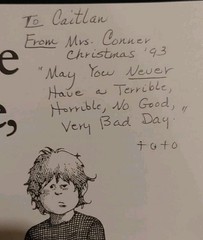 To Caitlan
From Mrs. Conner
Christmas '93
"May You Never
Have a Terrible,
Horrible, No Good,
Very Bad Day."
+ o + o
e
,